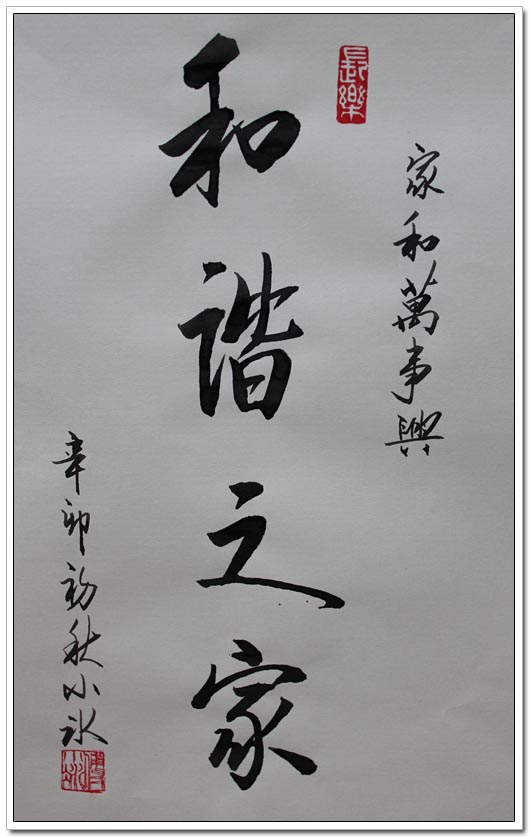 家和萬事興
長樂
和諧之家
辛卯初秋小冰